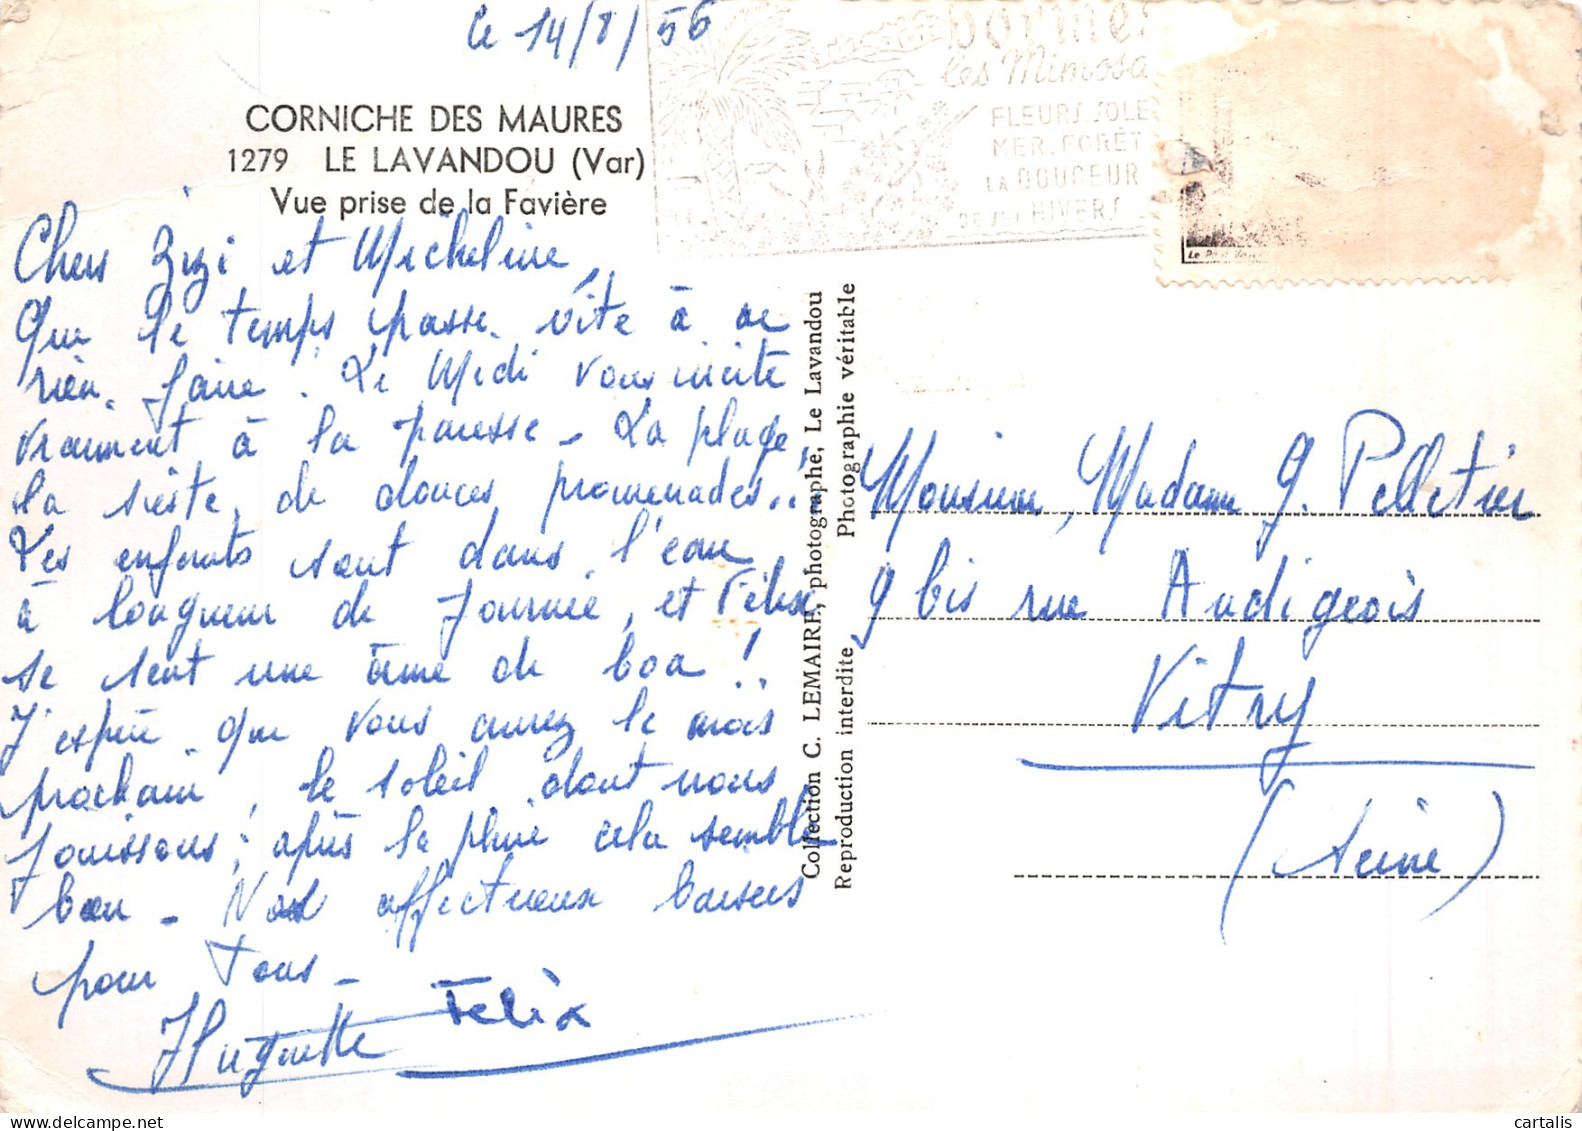 le 14/8/56
CORNICHE DES MAURES
1279 LE LAVANDOU (Var)
Vue prise de la Favière
Chers Zizi et Micheline,
Que le temps passe vite à ne
rien faire. Le Midi vous incite
vraiment à la paresse - La plage,
la sieste, de douces promenades..
Les enfants sont dans l'eau
à longueur de journée, et Félix
se sent une âme de boa !
J'espère que vous aurez le mois
prochain, le soleil dont nous
jouissons ; après la pluie cela semble
bon - Nos affectueux baisers
pour tous -
Huguette Félix
les Mimosa
FLEURS SOLE
MER. FORÊT
LA DOUCEUR
DE SES HIVERS
Collection C. LEMAIRE, photographe, Le Lavandou
Reproduction interdite Photographie véritable
Monsieur, Madame G. Pelletier
9 bis rue Audigeois
Vitry
(Seine)
cartalis